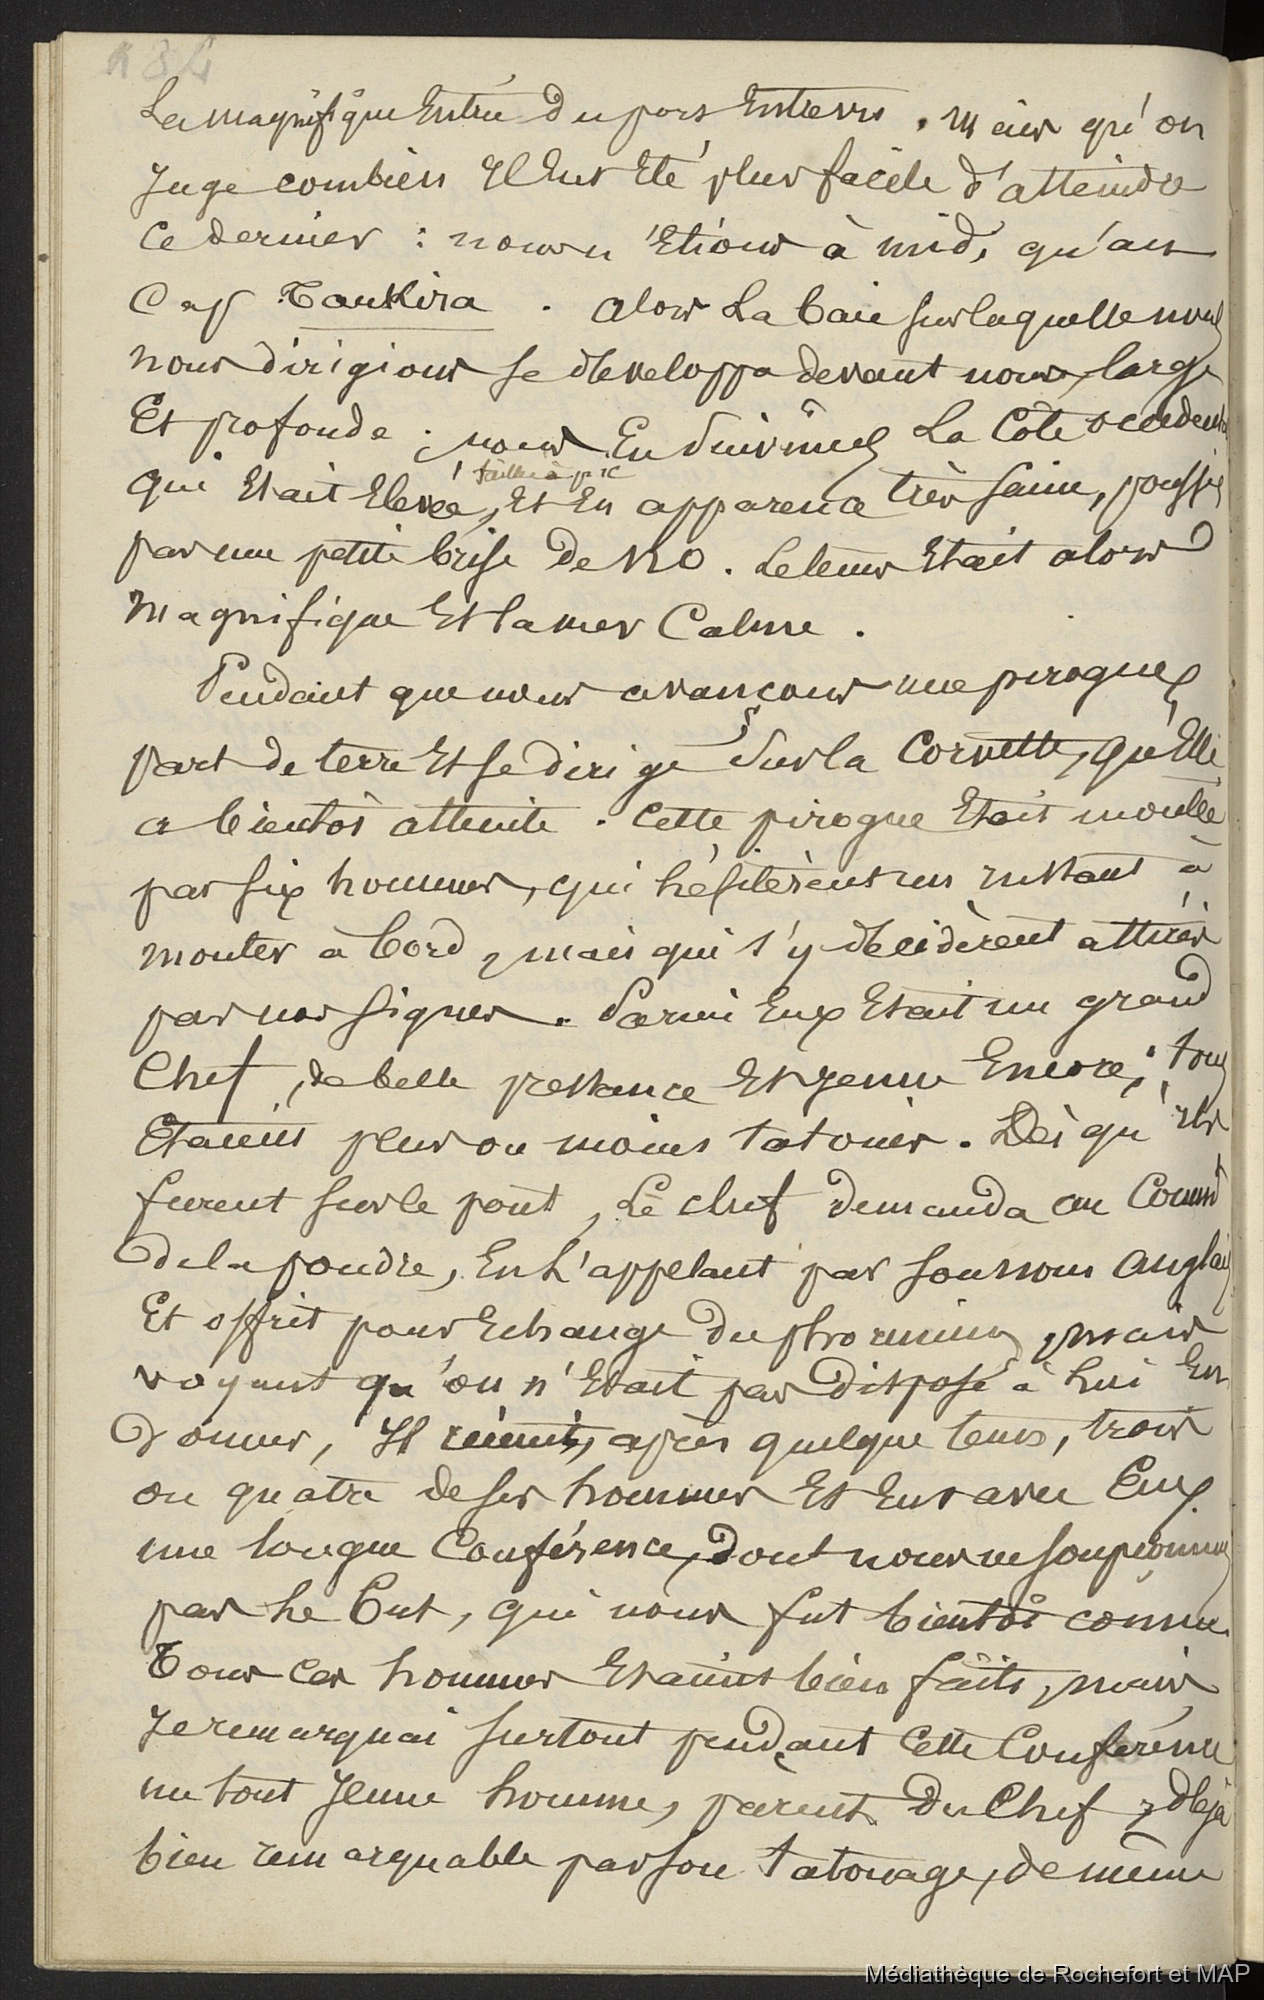 La magnifique Entrée du port Enterré. Mais qu'on
Juge combien Il Eut Eté plus facile d'atteindre
ce dernier : nous n'Etions à midi, qu'au
Cap Taukira. alors La baie sur laquelle nous
nous dirigions se developpa devant nous, large
Et profonde ; nous En suivîmes La Côte occidentale
taillée à pic
qui Etait Elevée, Et En apparence très saine, poussés
par une petite brise de NO. Le tems Etait alors
Magnifique Et la mer Calme.
Pendant que nous avancions une pirogue
part de terre Et se dirige sur la Corvette, qu'Elle
a bientôt atteinte. Cette pirogue Etait montée
par six hommes, qui hésitèrent un instant à
monter à bord, mais qui s'y décidèrent attirés
par nos signes. Parmi Eux Etait un grand
Chef, de belle prestance Et jeune Encore ; tous
Etaient plus ou moins tatoués. Dès qu'ils
furent sur le pont, Le chef demanda au Commt
de la poudre, En L'appelant par son nom anglais
Et offrit pour Echange du phormium, mais
voyant qu'on n'Etait pas disposé à Lui En
donner, Il réunit, après quelque tems, trois
ou quatre de ses hommes Et Eut avec Eux
une longue Conférence, dont nous ne soupçonnions
pas Le but, qui nous fut bientôt connu.
Tous ces hommes Etaient bien faits, mais
Je remarquai surtout pendant Cette Conférence
un tout Jeune homme, parent du Chef, déjà
bien remarquable par son tatouage, de même
Médiathèque de Rochefort et MAP